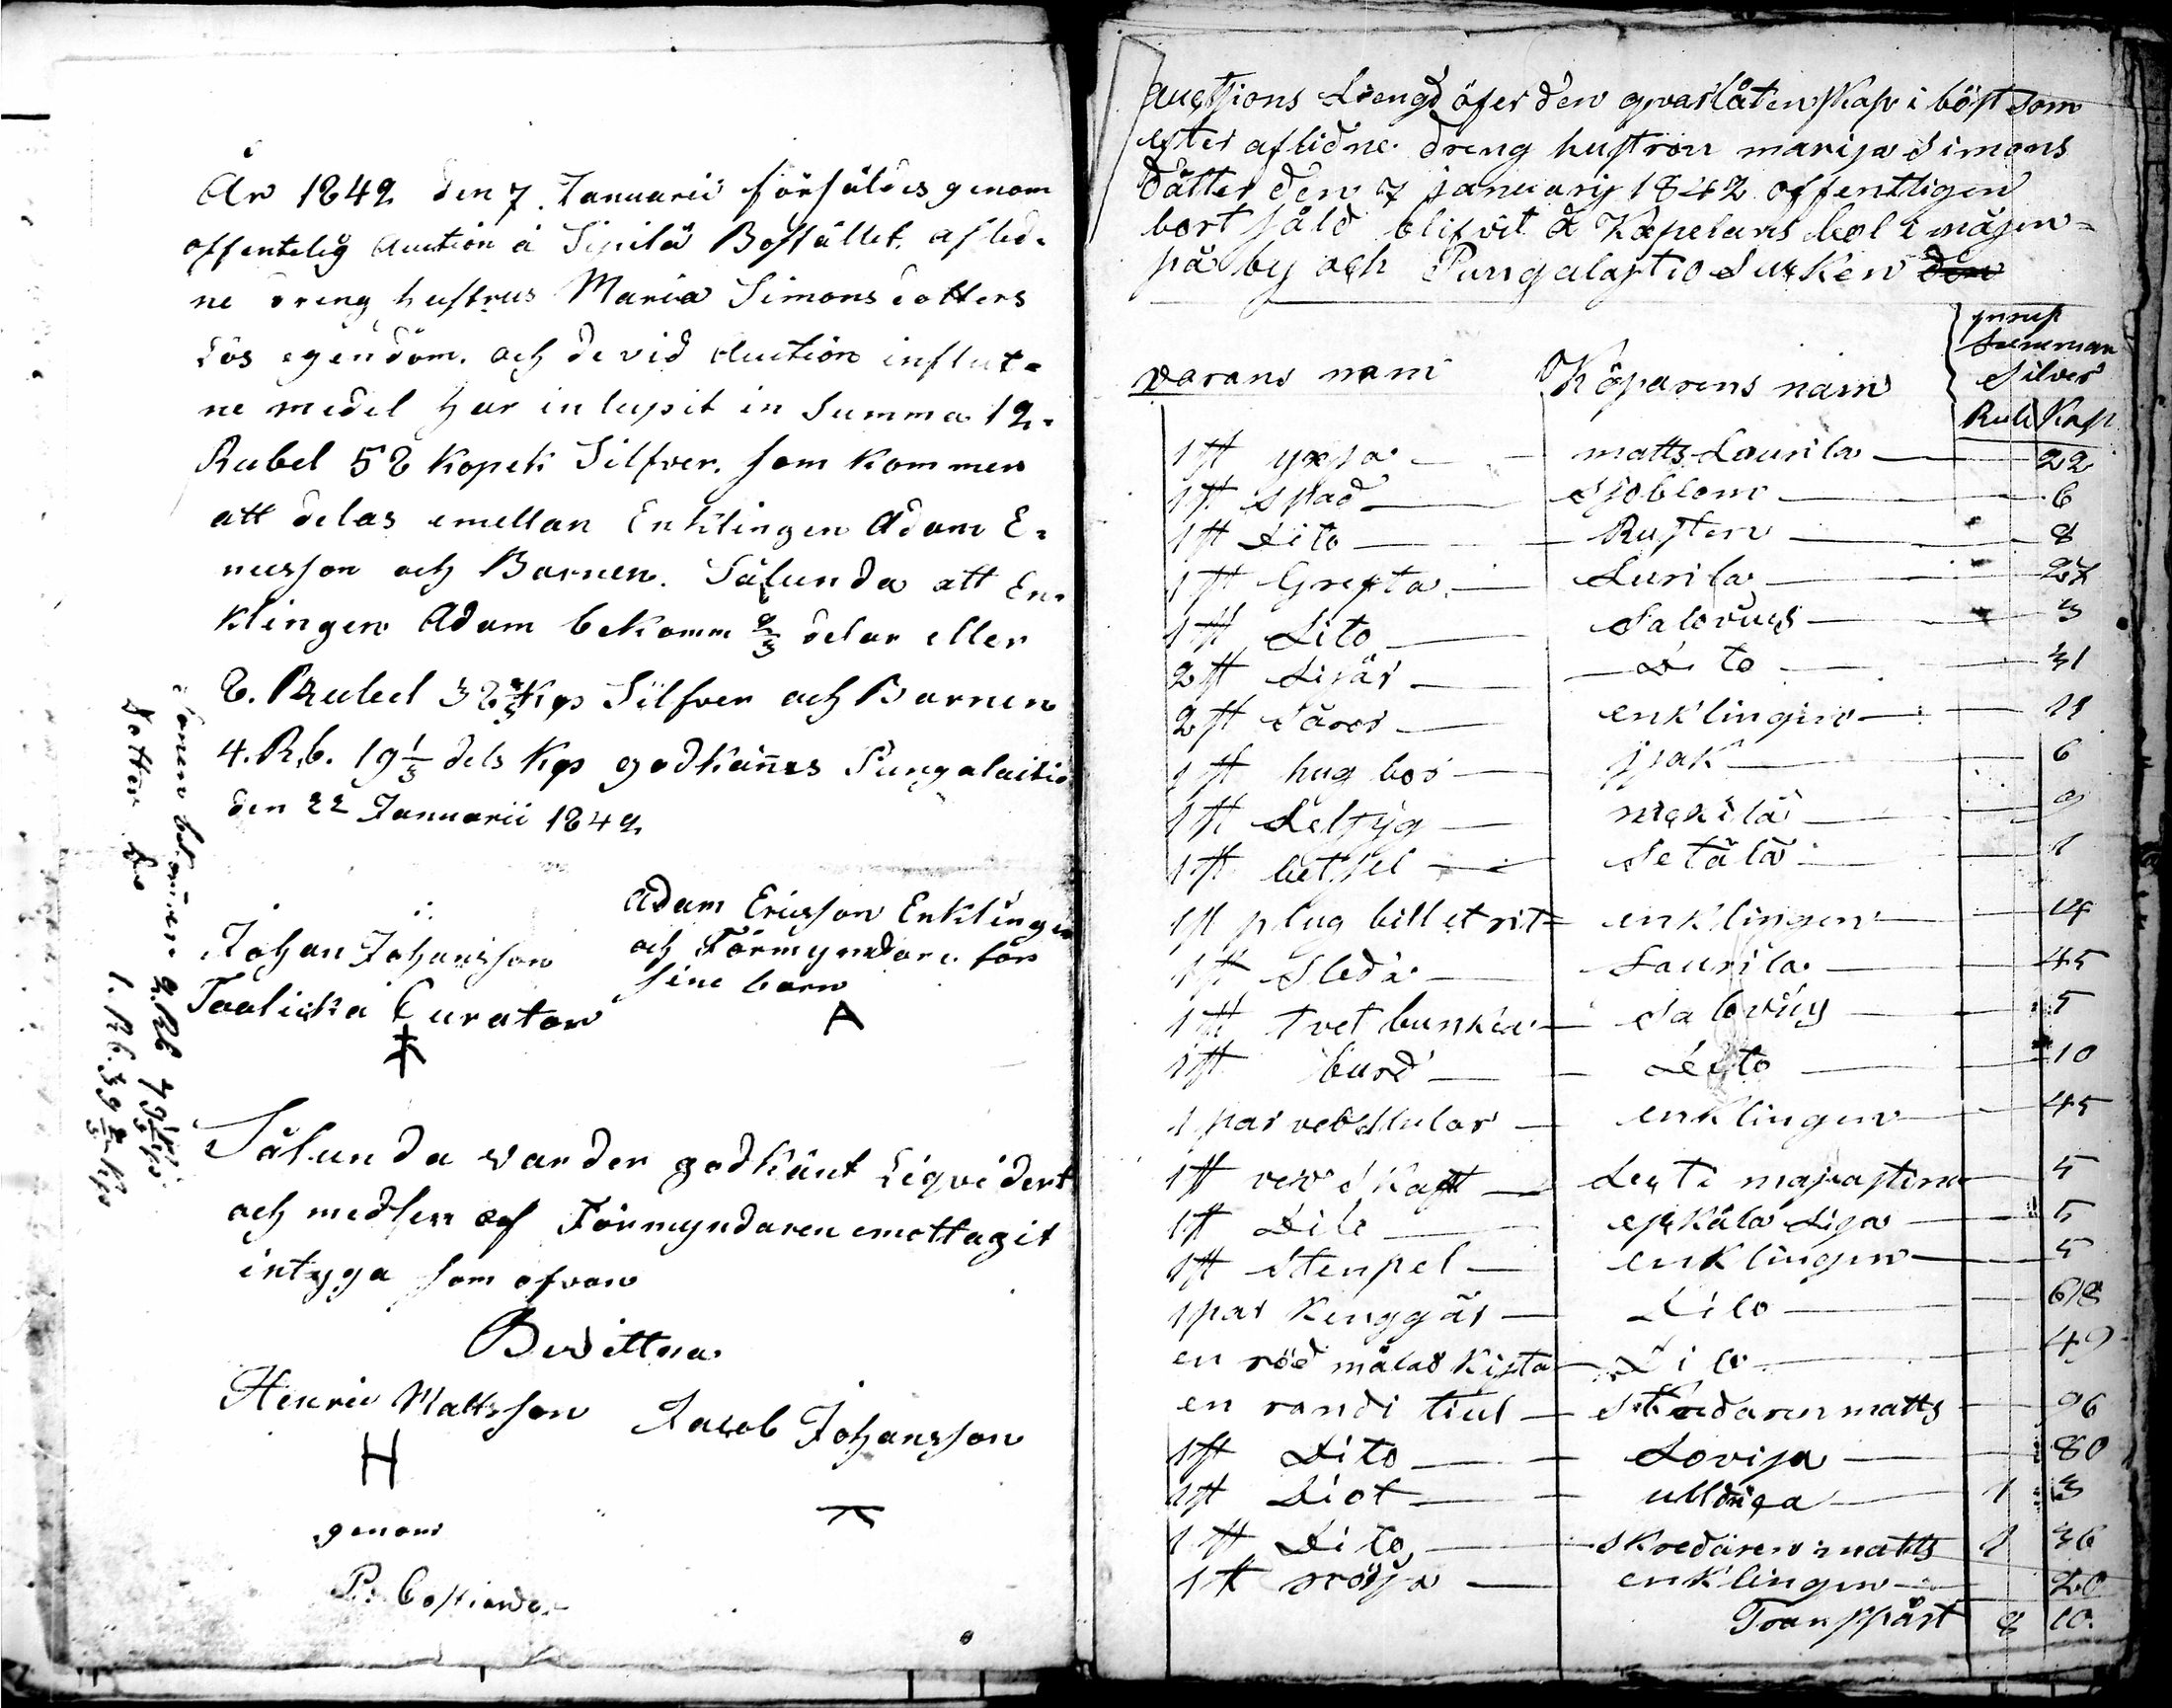 År 1842 den 7. Januarii försåldes genom
offentelig Auction å Sipilä Boställlet, afled-
ne dreng hustrus Maria Simonsdotters
Lös egendom. och de vid Auction influt-
ne medel har inlupit in Summa 12.
Rubel 58 Kopek Silfver. som kommer
att delas emellan Enklingen Adam E-
ricsson och Barnen. Sålunda att En-
klingen Adam bekomm 2/3 delar eller
8. Rubel 38 2/3 Kop Silfver och Barnen
4. Rb. 19 1/3 dels Kop godkännes Pungalaitio
den 22 Januarii 1842
Johan Johansson
Taalicka Curator
Adam Ericsson Enklingen
och Förmyndare för
sine barn
A
Sonen bekommer 2. Rb 79 Kop
Dotter Do 1. Rb. 39 2/3 Kop
Sålunda vander godkänt Liqvidert
och medlen af Förmyndaren emottagit
intyga som ofvan
Bevittna
Henric Mattsson Jacob Johansson
H
genom
P:
Auctsions Lengd öfer den qvarlåtenskap i böst som
efter aflidne dreng hustron marija Simons
dåtter den 7 januarij 1842 offentligen
bort såld blifvit å Kapelans bol i måsen-
pä by och Pungalajtio Sucken den
varans nam Köparens nam Summan Silver
Rub Kop
1 st yxsa matts Laurila 22
1 st spad Sjöblom 6
1 st Dito Rusten 8
1 st Grepta Lurila 27
1 st Dito Salovius 3
2 st Lirär Dito 31
2 st Såror enklingen 11
1 st hug bor jsak 6
1 st Seltyg mekilä 9
1 st betsel Setälä 1
1 st plug bill et rit enklingen 14
1 st Slede Laurila 45
1 st tvet bunka Salovius 5
1 st burd Dito 10
1 par veb stular enklingen 45
1 st vev skaft Lesti majastina 5
1 st Dito Lisa 5
1 st Stenpel enklingen 5
1 par Kenggär Dito 68
en röd målad Kista Dito 49
en randi tiul Skredaren matts 96
1 st Dito Lovisa 80
1 st Diot ulldrica 1 3
1 st Dito skredaren matts 1 36
1 st tröja enklingen 20
Transppårt 8 10.